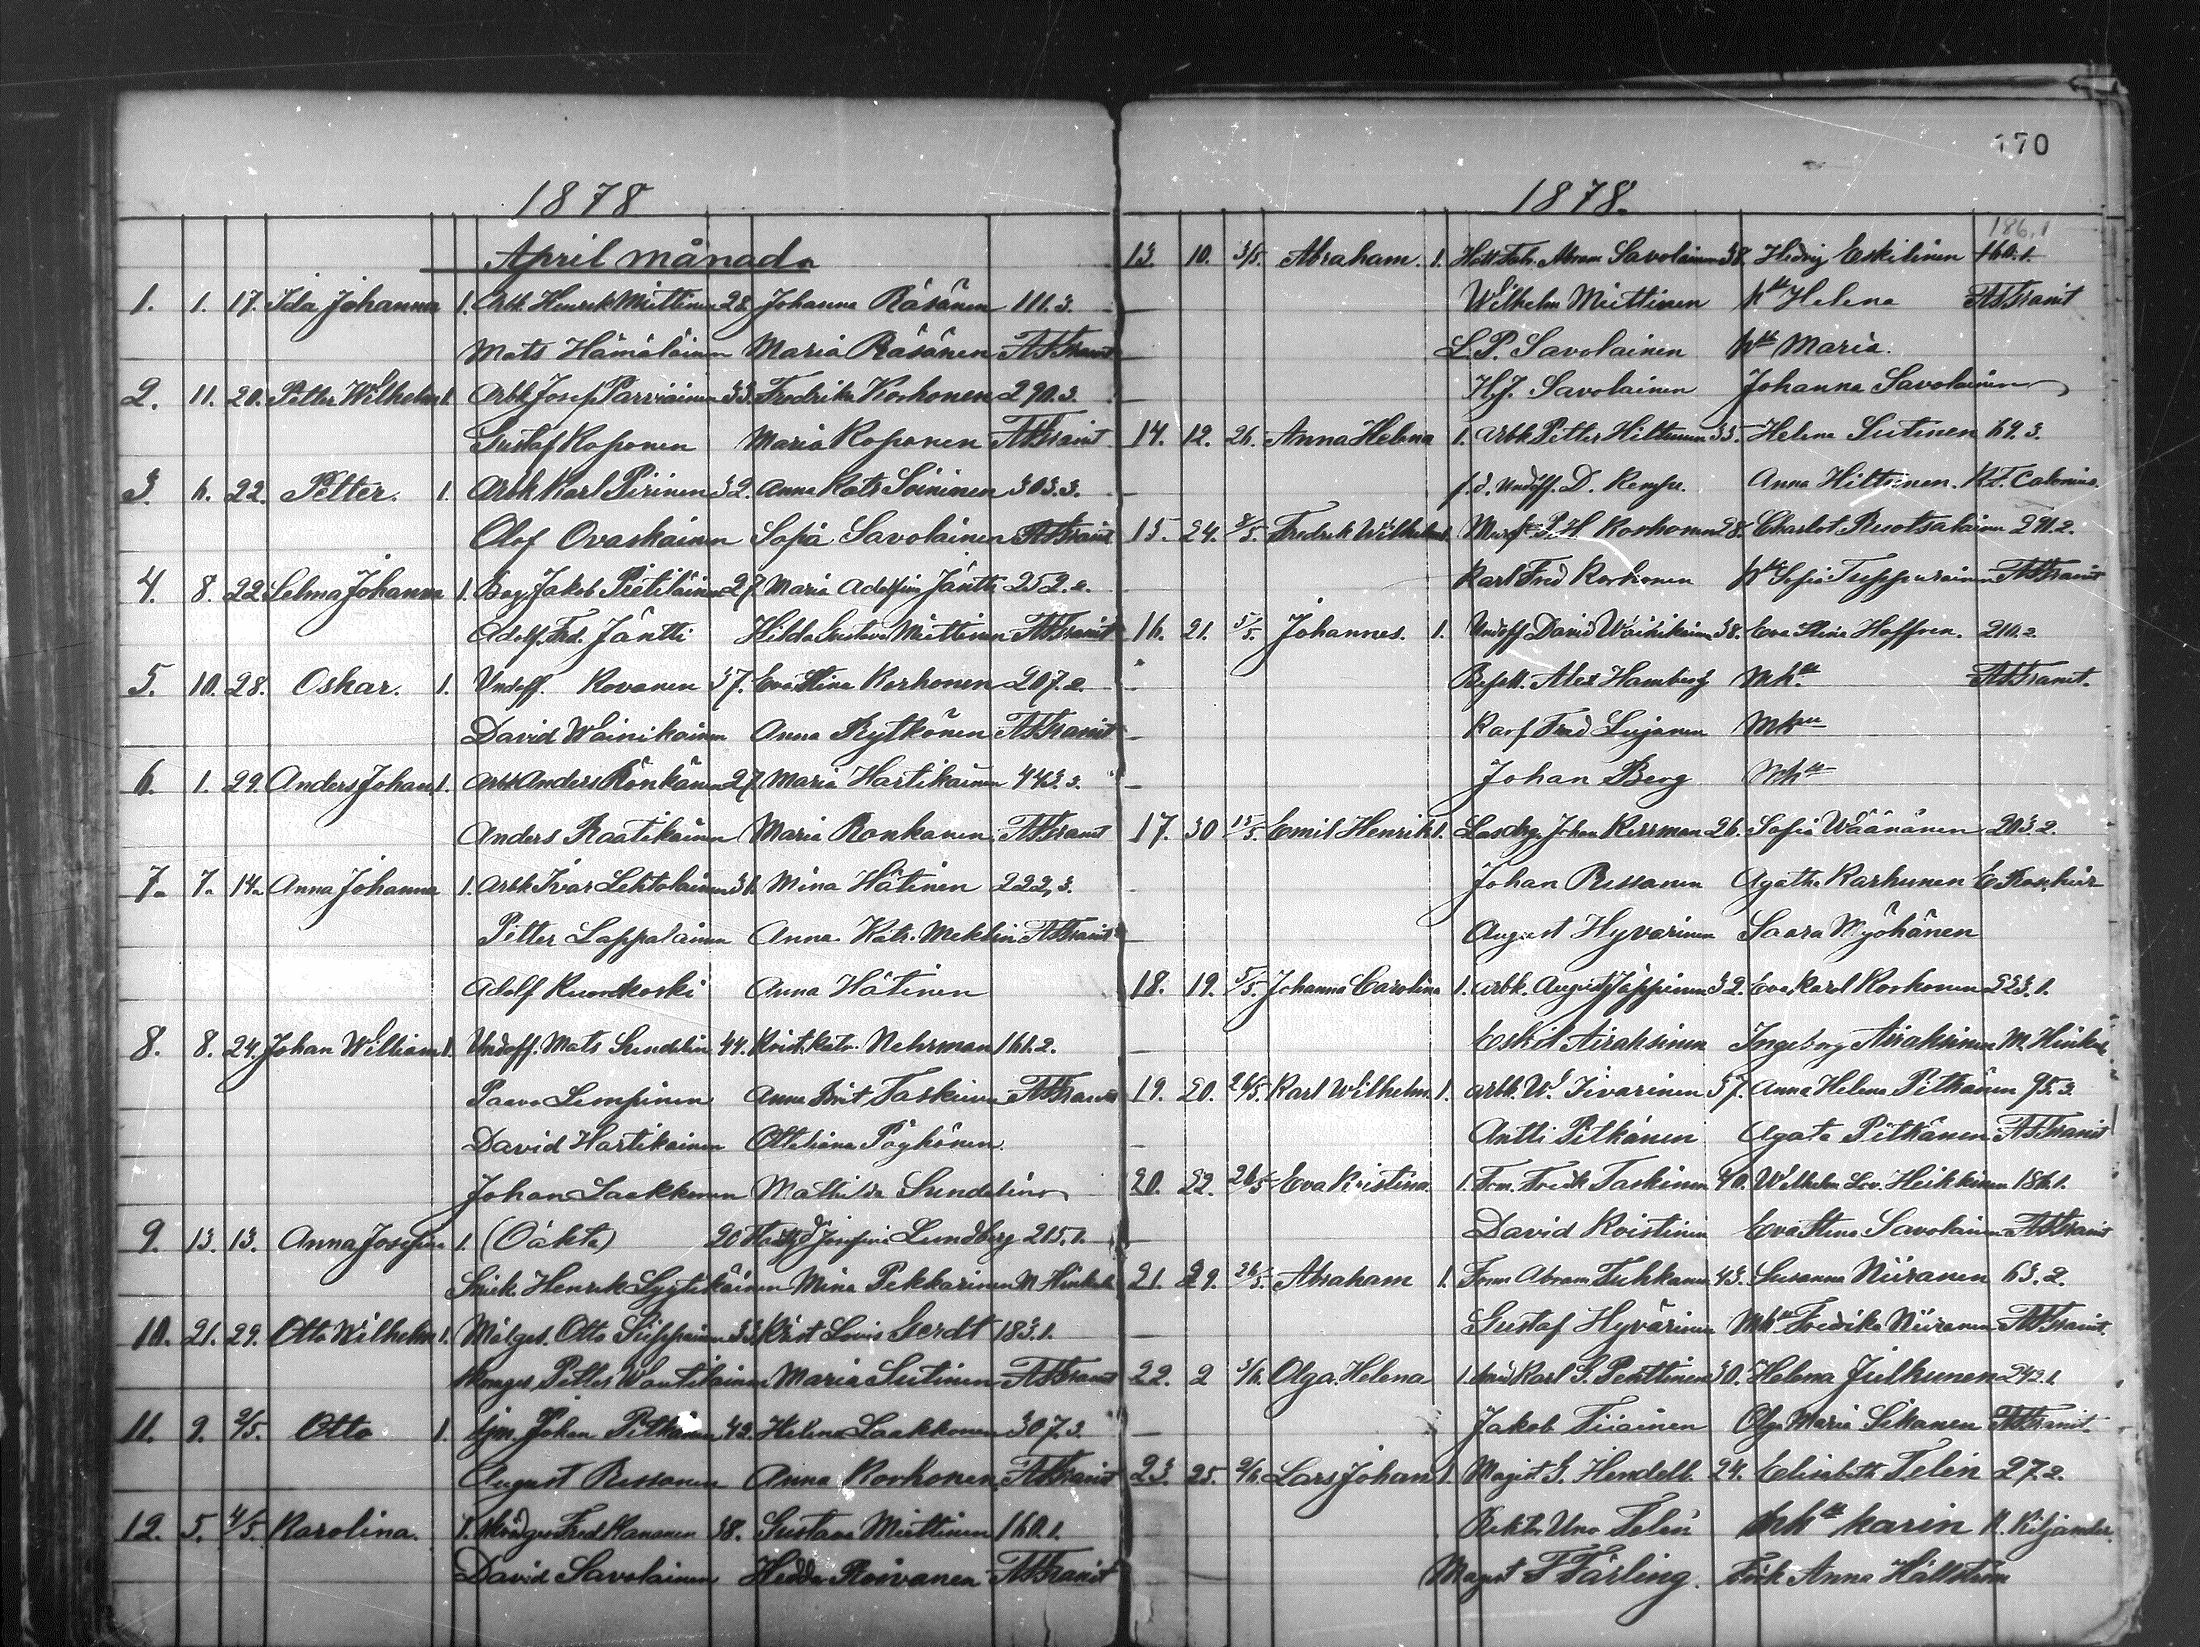 1878
April månad
1. 1. 17. Ida Johanna 1. Arb. Henrik Miettinen 28. Johanna Räsänen 111.3.
Mats Hämäläinen Maria Räsänen
2. 11. 20. Petter Wilhelm 1. Arbk Josef Parviainen 33. Fredrika Korhonen 290.3.
Gustaf Koponen Maria Koponen
3. 6. 22. Petter. 1. Arbk Karl Pirinen 32. Anna Katr Soininen 303.3.
Olof Ovaskainen Sofia Savolainen
4. 8. 22. Selma Johanna 1. Jakob Pietiläinen 27. Maria Adolfina Jäntti 252.2.
Adolf Fred. Jäntti Hilda Gustava Miettinen
5. 10. 28. Oskar. 1. Undoff. Kovanen 37. Eva Stina Korhonen 207.2.
David Wäinikäinen Anna Rytkönen
6. 1. 29. Anders Johan 1. Arbk Anders Rönkänen 27. Maria Hartikainen 443.3.
Anders Raatikainen Maria Ronkanen
7. 7. 14. Anna Johanna 1. Arbk Ivar Lehtolainen 31. Mina Hätinen 222,3.
Petter Lappalainen Anna Katr. Meklin
Adolf Ruonkoski Anna Hätinen
8. 8. 24. Johan William 1. Undoff. Mats Sundelin 44. Krist. Katr. Nehrman 161.2.
Paavo Lempinen Anna Brit Taskinen
David Hartikainen Ottiliana Pöyhönen
Johan Laakkonen Mathilda Sundelin
9. 13. 13. Anna Josefina 1. (Oäkta) 20 Josefina Lundberg 215.1.
Henrik Lyytikäinen Mina Pekkarinen M. Hinkula
10. 21. 29. Otto Wilhelm 1. Målges. Otto Sippainen 33 Krist Lovis Gerdt 183.1.
Petter Wautilainen Maria Sutinen
11. 9. 2/5. Otto 1. Johan Pitkänen 42. Helena Laakkonen 307.3.
August Rissanen Anna Korhonen
12. 5. 4/5. Karolina. 1. Fred Hananen 38. Gustava Miettinen 160.1.
David Savolainen Hedda Roivanen
170
1878.
186.1
13. 10. 3/5. Abraham. 1. Abram Savolainen 38. Hedvig Eskelinen 160.1.
Wilhelm Miettinen Helena
L. P. Savolainen Maria.
H. J. Savolainen Johanna Savolainen
14. 12. 26. Anna Helena 1. Arbk Petter Hiltunen 33. Helena Sutinen 69.3.
f. d. Undoff. D. Kempe. Anna Hiltunen. K. F. Calonius.
15. 24. 2/5. Fredrik Wilhelm 1. P. H. Korhonen 28. Charlot Ruotsalainen 271.2.
Karl Fred Korhonen Sofia Tuppurainen
16. 21. 5/5. Johannes. 1. Undoff David Wäinikäinen 38. Eva Stina Hoffren. 210.2
Alex Hamberg
Karl Fred Lujanen
Johan Berg
17. 30 12/5. Emil Henrik 1. Johan Kerrman 26. Sofia Wäänänen 203.2.
Johan Rissanen Agatha Karhunen
August Hyvärinen Saara Myöhänen
18. 19. 5/5. Johanna Carolina 1. Arbk. August Jäppinen 32. Eva Karol Korhonen 223.1.
Eskil Airaksinen Ingeborg Airaksinen M. Hinkula
19. 20. 26/5. Karl Wilhelm. 1. Arbk. W. Iivarinen 37. Anna Helena Pitkänen 95.3.
Antti Pitkänen Agata Pitkänen
20. 22. 26/5 Eva Kristina. 1. Fredk Taskinen 40. Wilhelm Lov. Heikkinen 186.1.
David Koistinen Eva Stina Savolainen
21. 29. 26/5. Abraham 1. Abram Tuhkanen 43. Susanna Niiranen 63.2.
Gustaf Hyvärinen Fredika Niiranen
22. 2 3/6. Olga Helena 1. Karl G. Penttinen 30. Helena Julkunen 242.1
Jakob Tiiainen Olga Maria Sikanen
23. 25. 2/6. Lars Johan 1. Magist G. Hendell. 24. Elisabeth Telén 27.2.
Rektor Uno Telén Karin K. Kiljander.
Magist F Färling. Anna Hällström